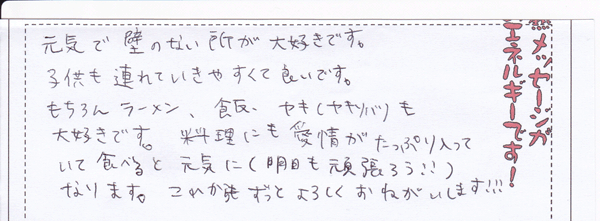 元気で壁のない所が大好きです。
子供も連れていきやすくて良いです。
もちろんラーメン、飯、ヤキ(ヤキソバ)も
大好きです。料理にも愛情がたっぷり入って
いて食べると元気に(明日も頑張ろう!!)
なります。これからもずっとよろしくおねがいします!!!
メッセージが
エネルギーです!